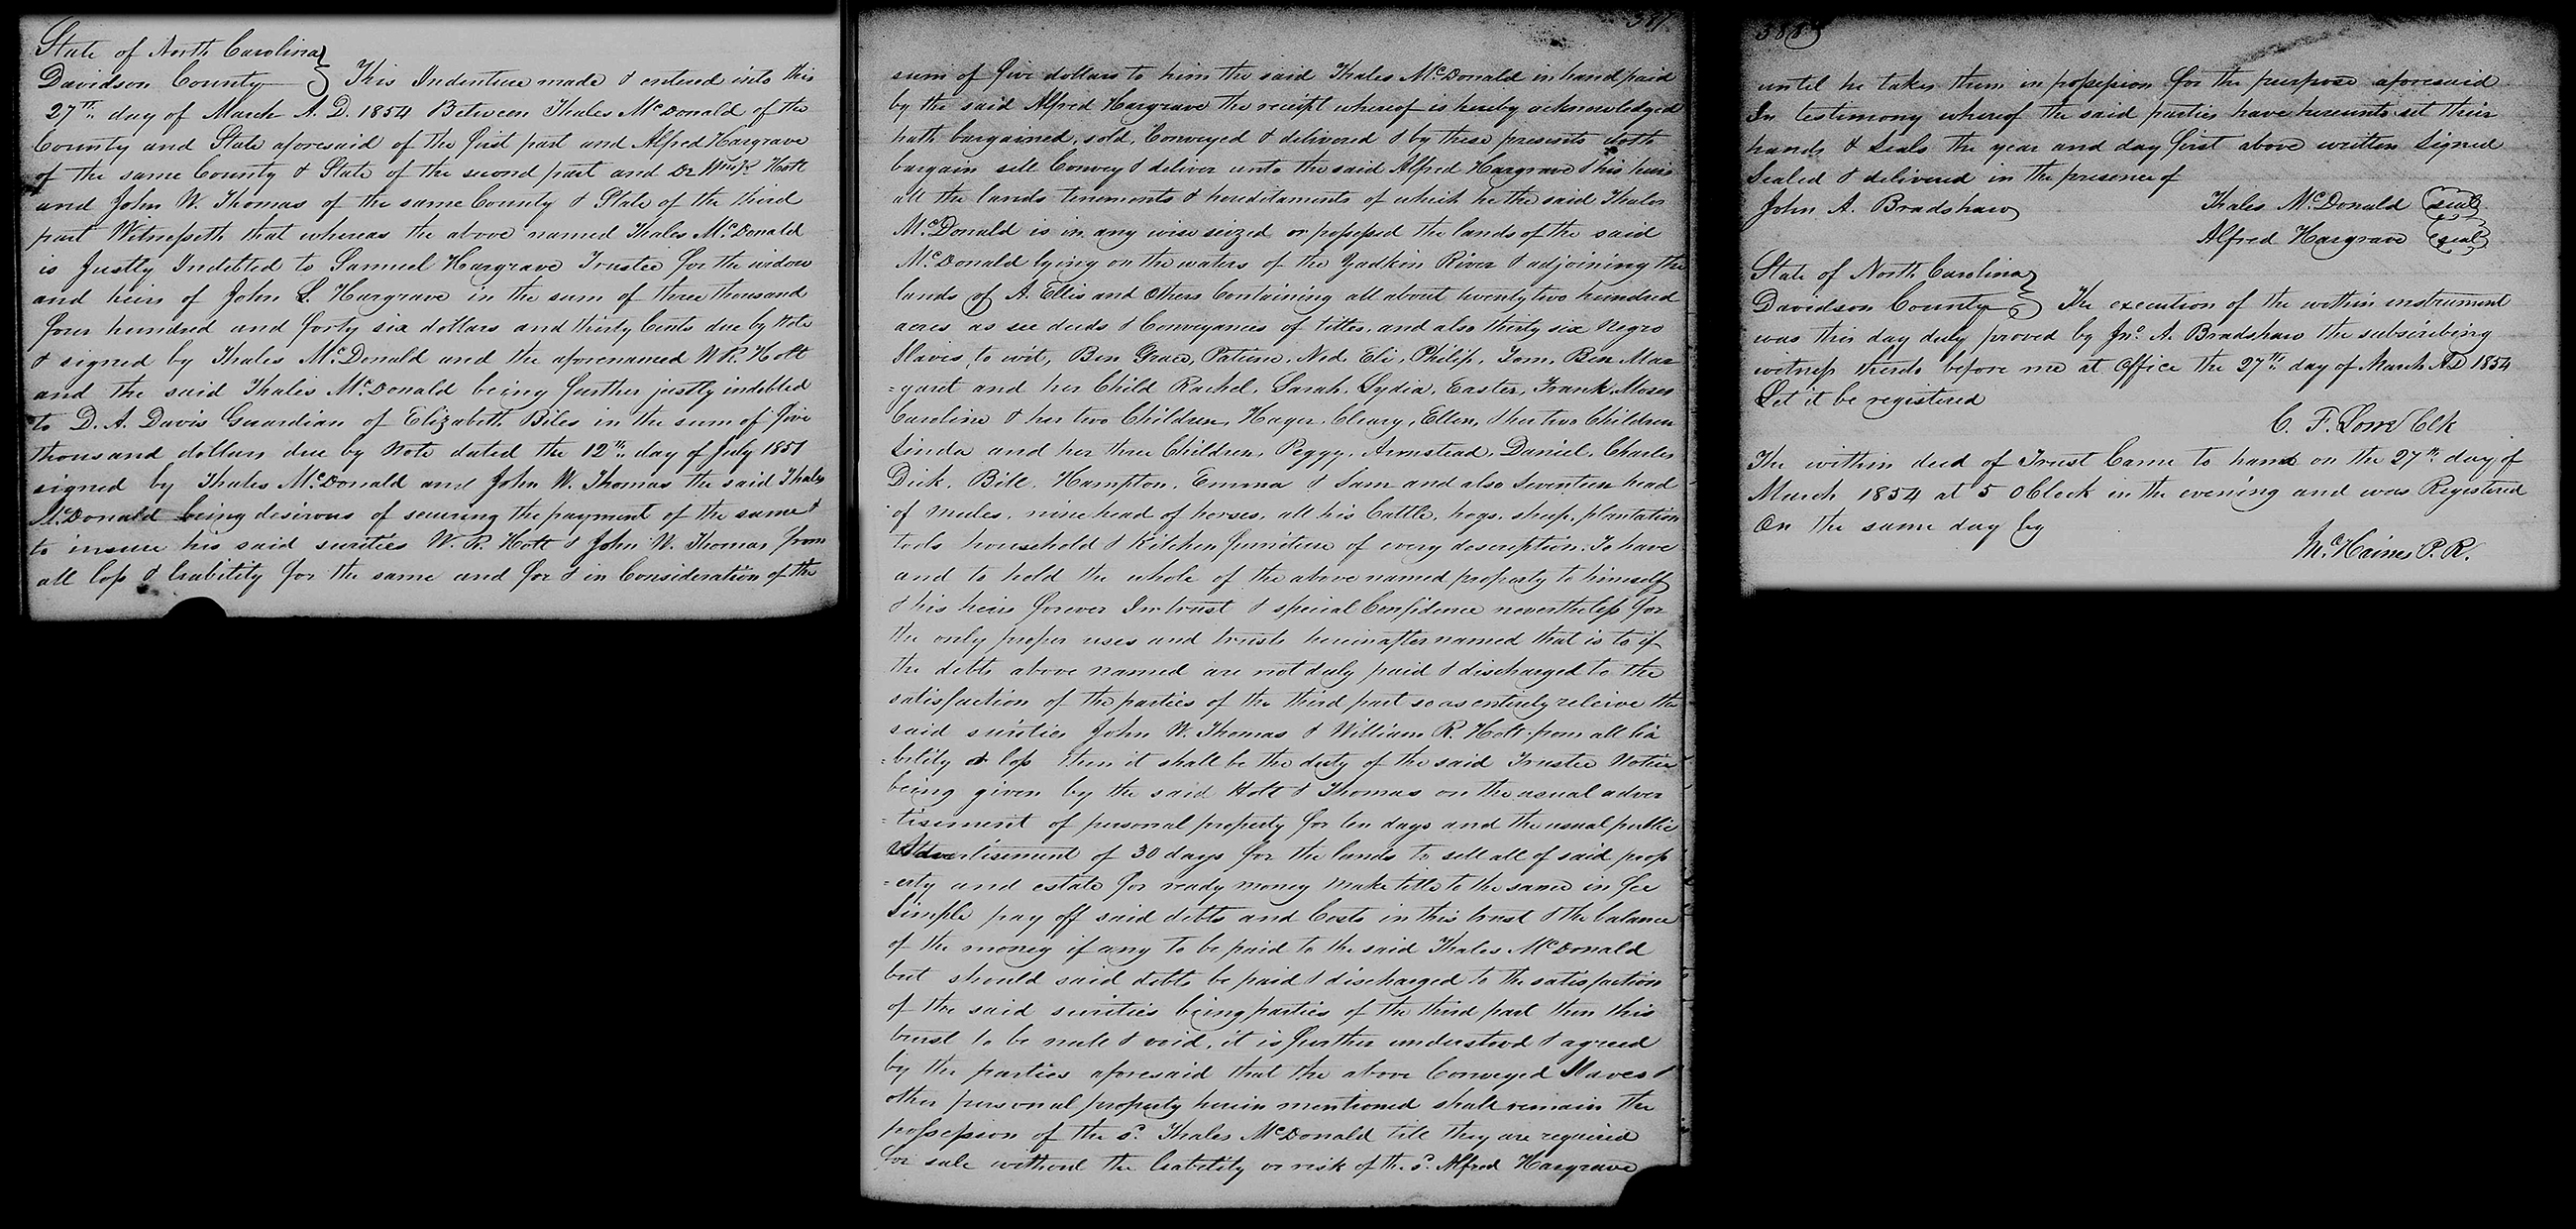 State of North Carolina
Davidson County This Indenture made & entered into this
27th day of March A. D. 1854 Between Thales McDonald of the
County and State aforesaid of the first part and Alfred Hargrave
of the same County & State of the second part and Dr Wm R. Holt
and John W. Thomas of the same County & State of the third
part Witnesseth that whereas the above named Thales McDonald
is Justly Indebted to Samuel Hargrave Trustee for the widow
and heirs of John L. Hargrave in the sum of three thousand
four hundred and forty six dollars and thirty Cents due by Note
& signed by Thales McDonald and the aforenamed W. R. Holt
and the said Thales McDonald being further justly indebted
to D. A. Davis Guardian of Elizabeth Biles in the sum of five
thousand dollars due by Note dated the 12th day of July 1851
signed by Thales McDonald and John W. Thomas the said Thales
McDonald being desirous of securing the payment of the same &
to insure his said surities W. R. Holt & John W. Thomas from
all loss & liability for the same and for & in Consideration of the
sum of five dollars to him the said Thales McDonald in hand paid
by the said Alfred Hargrave the receipt whereof is hereby acknowledged
hath bargained, sold, Conveyed & delivered & by these presents doth
bargain sell Convey & deliver unto the said Alfred Hargrave & his heirs
all the lands tenements & hereditaments of which he the said Thales
McDonald is in any wise seized or possessed the lands of the said
McDonald lying on the waters of the Yadkin River & adjoining the
lands of A. Ellis and others Containing all about twenty two hundred
acres as see deeds & Conveyances of titles, and also thirty six Negro
Slaves, to wit, Ben Grace, Patience, Ned, Eli, Philip, Tom, Ben Mar
=garet and her Child Rachel, Sarah, Lydia, Easter, Frank, Moses
Caroline & her two Children, Hager, Cleary, Ellen, & her two Children
Linda and her three Children, Peggy, Armstead, Daniel, Charles
Dick, Bill, Hampton, Emma & Sam and also Seventeen head
of mules, nine head of horses, all his Cattle, hogs, sheep, plantation
tools household & Kitchen furniture of every description. To have
and to hold the whole of the above named property to himself
& his heirs forever In trust & special Confidence nevertheless for
the only proper uses and trusts hereinafter named that is to if
the debts above named are not duly paid & discharged to the
satisfaction of the parties of the third part so as entirely releive the
said surities John W. Thomas & William R. Holt from all lia
=bility & loss then it shall be the duty of the said Trustee Notice
being given by the said Holt & Thomas on the usual adver
=tisement of personal property for ten days and the usual public
Advertisement of 30 days for the lands to sell all of said prop
=erty and estate for ready money make title to the same in fee
Simple pay off said debts and Costs in this trust & the balance
of the money if any to be paid to the said Thales McDonald
but should said debts be paid & discharged to the satisfaction
of the said surities being parties of the third part then this
trust to be null & void, it is further understood & agreed
by the parties aforesaid that the above Conveyed Slaves &
other personal property herein mentioned shall remain the
possession of the sd. Thales McDonald till they are required
for sale without the liability or risk of the sd. Alfred Hargrave
388
until he takes them in possession for the purpose aforesaid
In testimony whereof the said parties have hereunto set their
hands & Seals the year and day first above written Signed
Sealed & delivered in the presence of
John A. Bradshaw Thales McDonald seal
Alfred Hargrave seal
State of North Carolina
Davidson County The execution of the within instrument
was this day duly proved by Jno. A. Bradshaw the subscribing
witness thereto before me at Office the 27th day of March AD 1854
Let it be registered
C. F. Lowe Clk
The within deed of Trust Came to hand on the 27th day of
March 1854 at 5 OClock in the evening and was Registered
On the same day by
Haines P. R.